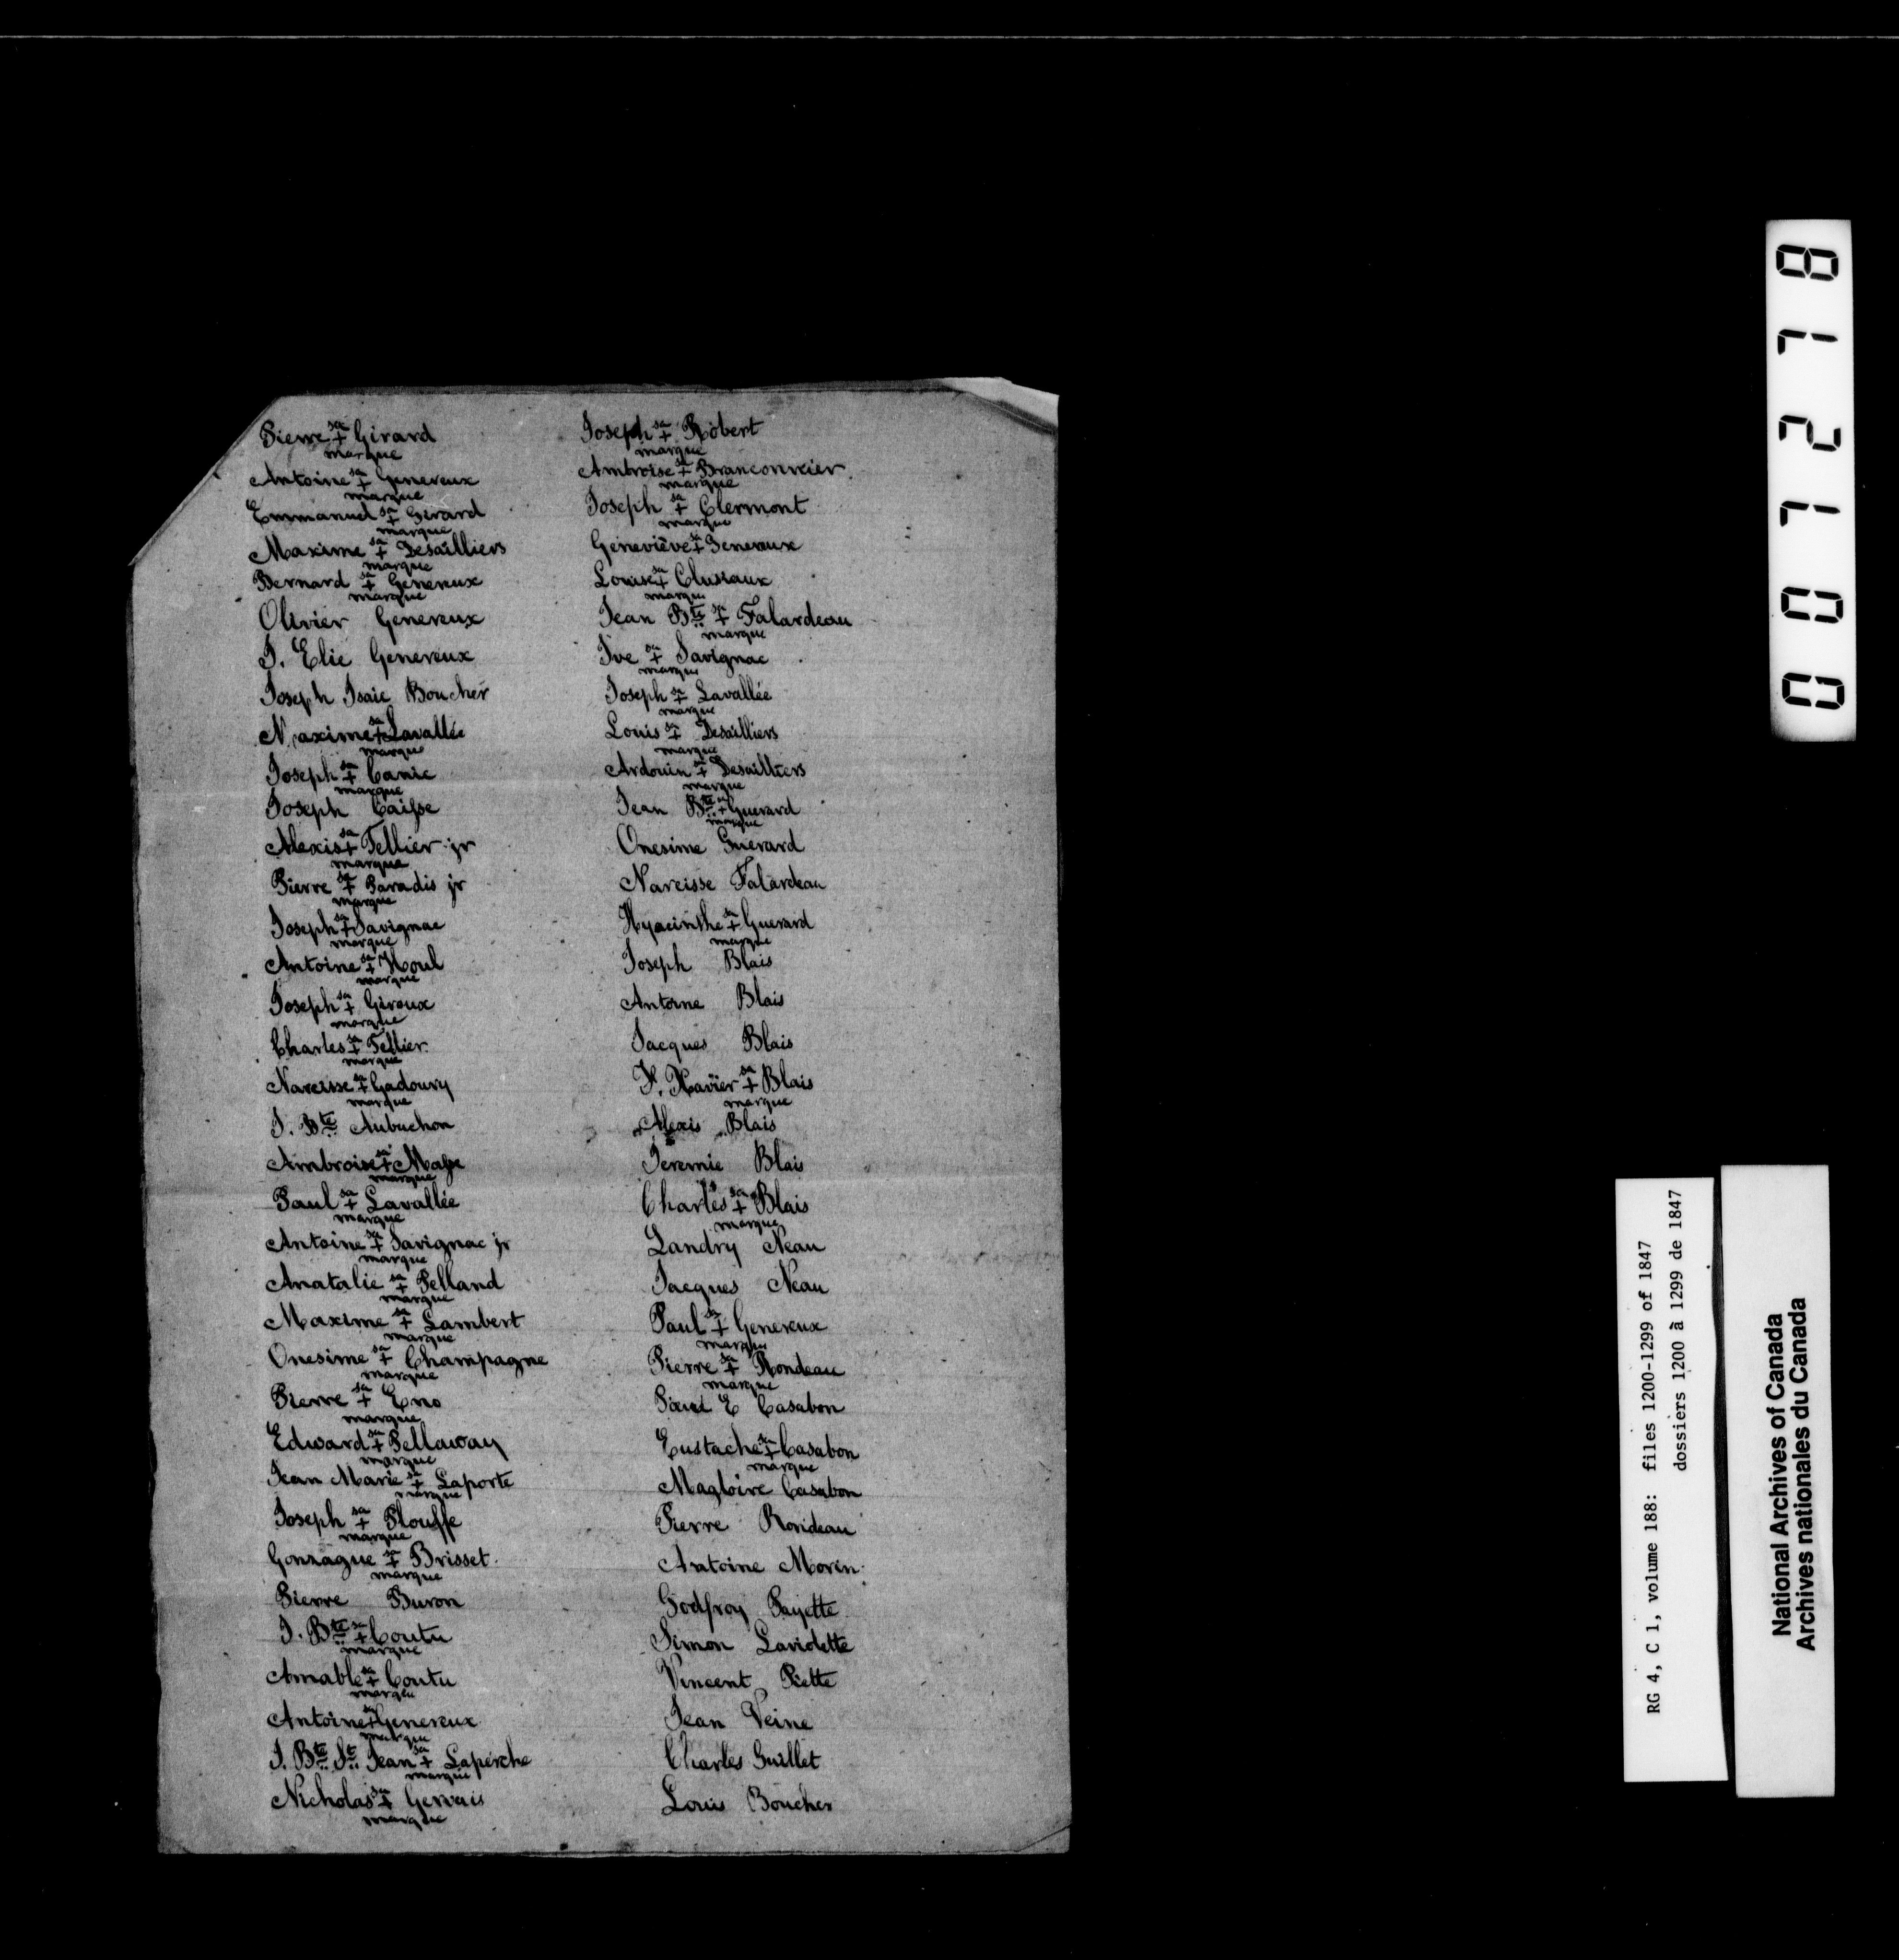 Pierre sa + Girard
marque
Antoine sa + Genereux
marque
Emmanuel sa + Girard
marque
Maxime sa + Desailliers
marque
Bernard sa + Genereux
marque
Olivier Genereux
J. Elie Genereux
Joseph Isaie Boucher
Maxime sa + Lavallée
marque
Joseph sa + Canie
marque
Joseph Caisse
Alexis sa + Tellier jr
marque
Pierre sa + Paradis jr
marque
Joseph sa + Savignac
marque
Antoine sa + Houl
marque
Joseph sa + Giroux
marque
Charles sa + Tellier
marque
Narcisse sa + Gadoury
marque
J. Bte Aubuchon
Ambroise sa + Masse
marque
Paul sa + Lavallée
marque
Antoine sa + Savignac jr
marque
Anatalie sa + Pelland
marque
Maxime sa + Lambert
marque
Onesime sa + Champagne
marque
Pierre sa + Eno
marque
Edward sa + Pellaway
marque
Jean Marie sa + Laporte
marque
Joseph sa + Plouffe
marque
Gonzague sa + Brisset
marque
Pierre Buron
J. Bte sa + Coutu
marque
Amable sa + Coutu
marque
Antoine sa + Genereux
marque
J. Bte St. Jean sa + Laperche
marque
Nicholas sa + Gervais
marque
Joseph sa + Robert
marque
Ambroise sa + Branconnier
marque
Joseph sa + Clermont
marque
Geneviève sa + Genereux
Louise sa + Clusiaux
marque
Jean Bte sa + Falardeau
marque
Ive sa + Savignac
marque
Joseph sa + Lavallée
marque
Louis sa + Desailliers
marque
Ardouin sa + Desailliers
marque
Jean Bte sa + Guerard
marque
Onesime Guerard
Narcisse Falardeau
Hyacinthe sa + Guerard
marque
Joseph Blais
Antoine Blais
Jacques Blais
F. Xavier sa + Blais
marque
Alexis Blais
Jeremie Blais
Charles sa + Blais
marque
Landry Neau
Jacques Neau
Paul sa + Genereux
marque
Pierre sa + Rondeau
marque
Paul E Casabon
Eustache sa + Casabon
marque
Magloire Casabon
Pierre Rondeau
Antoine Morin
Godfroy Payette
Simon Laviolette
Vincent Piette
Jean Veine
Charles Guillet
Louis Boucher
007278
RG 4, C 1, volume 188: files 1200-1299 of 1847
dossiers 1200 à 1299 de 1847
National Archives of Canada
Archives nationales du Canada